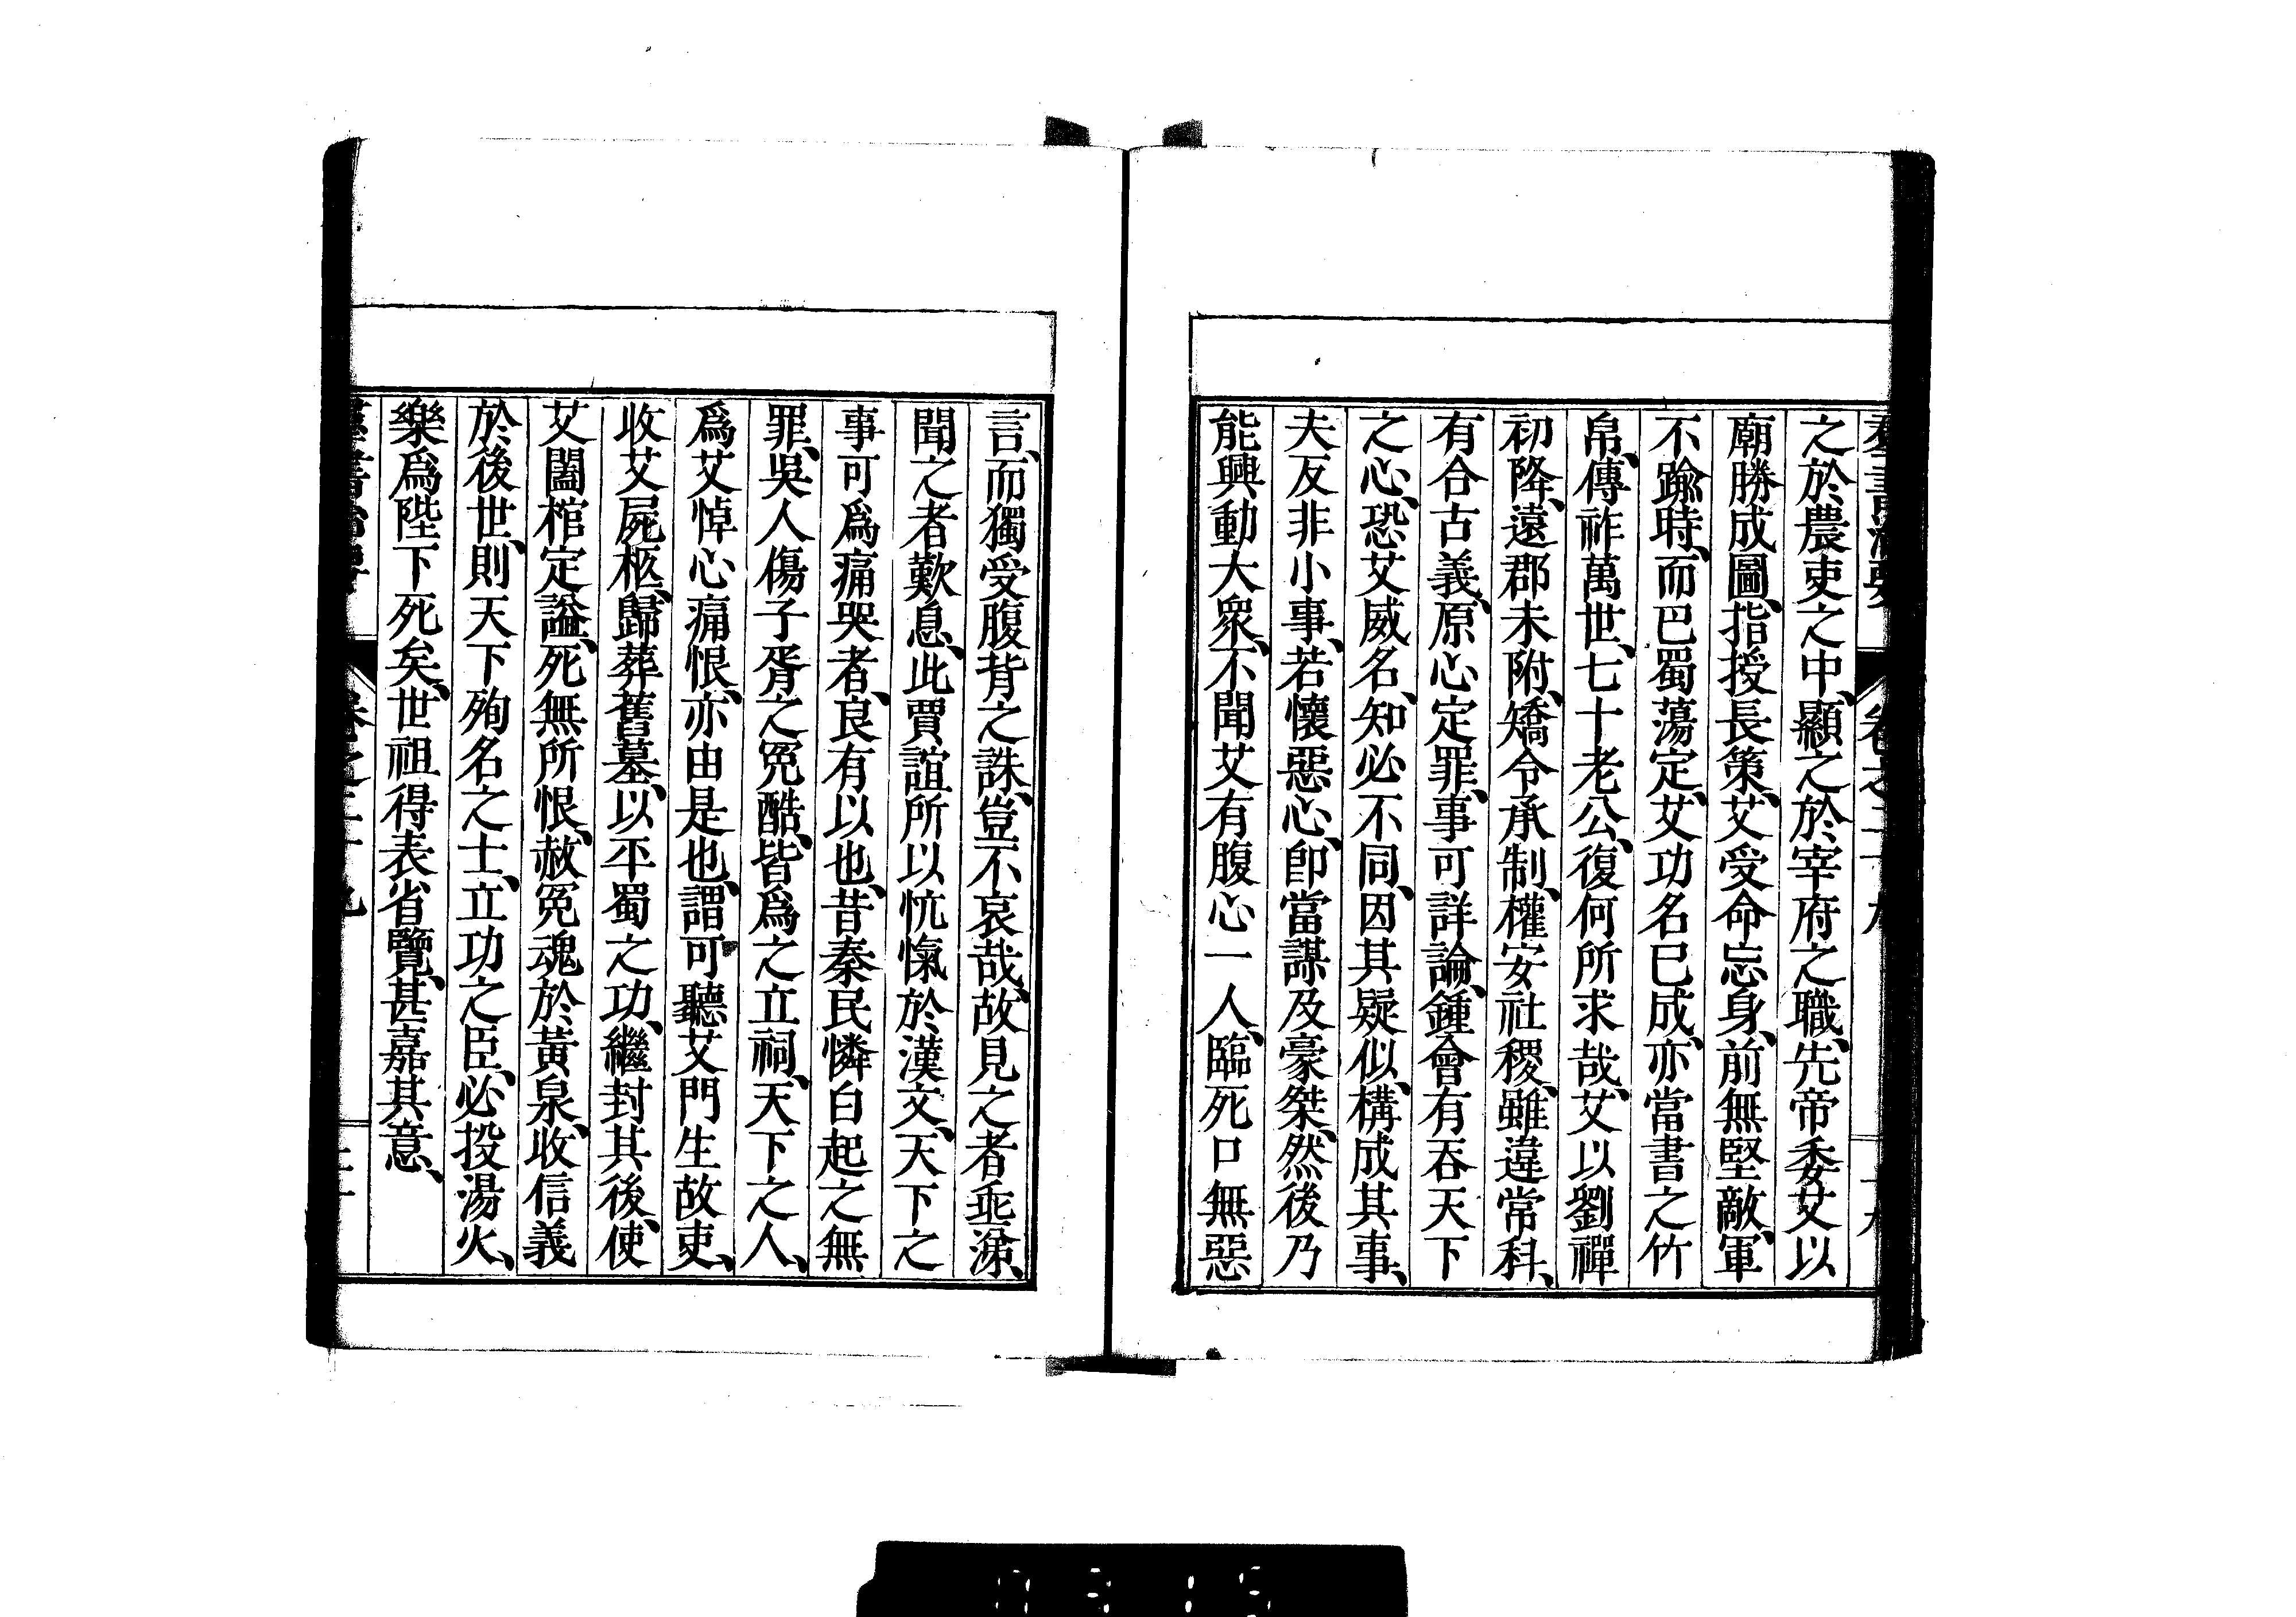 之於農吏之中、顯之於宰府之職、先帝委艾以
廟勝成圖、指授長策、艾受命忘身、前無堅敵、軍
不踰時、而巴蜀蕩定、艾功名已成、亦當書之竹
帛、傳祚萬世、七十老公、復何所求哉、艾以劉禪
初降、遠郡未附、矯令承制、權安社稷、雖違常科、
有合古義、原心定罪、事可詳論、鍾會有吞天下
之心、恐艾威名、知必不同、因其疑似、構成其事、
夫反非小事、若懷惡心、即當謀及豪桀、然後乃
能興動大衆、不聞艾有腹心一人、臨死口無惡
言、而獨受腹背之誅、豈不哀哉、故見之者垂涕、
聞之者歎息、此賈誼所以忼愾於漢文、天下之
事可爲痛哭者、良有以也、昔秦民憐白起之無
罪、吳人傷子胥之冤酷、皆爲之立祠、天下之人、
爲艾悼心痛恨、亦由是也、謂可聽艾門生故吏、
收艾屍柩、歸葬舊墓、以平蜀之功、繼封其後、使
艾闔棺定謚、死無所恨、赦冤魂於黃泉、收信義
於後世、則天下殉名之士、立功之臣、必投湯火、
樂爲陛下死矣、世祖得表省覽、甚嘉其意、